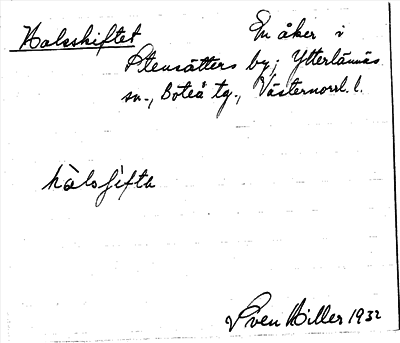 Halsskiftet
En åker i
Stensätters by, Ytterlännäs
sn., Boteå tg., Västernorrl. l.
hàlsfìfta
Sven Hiller 1932